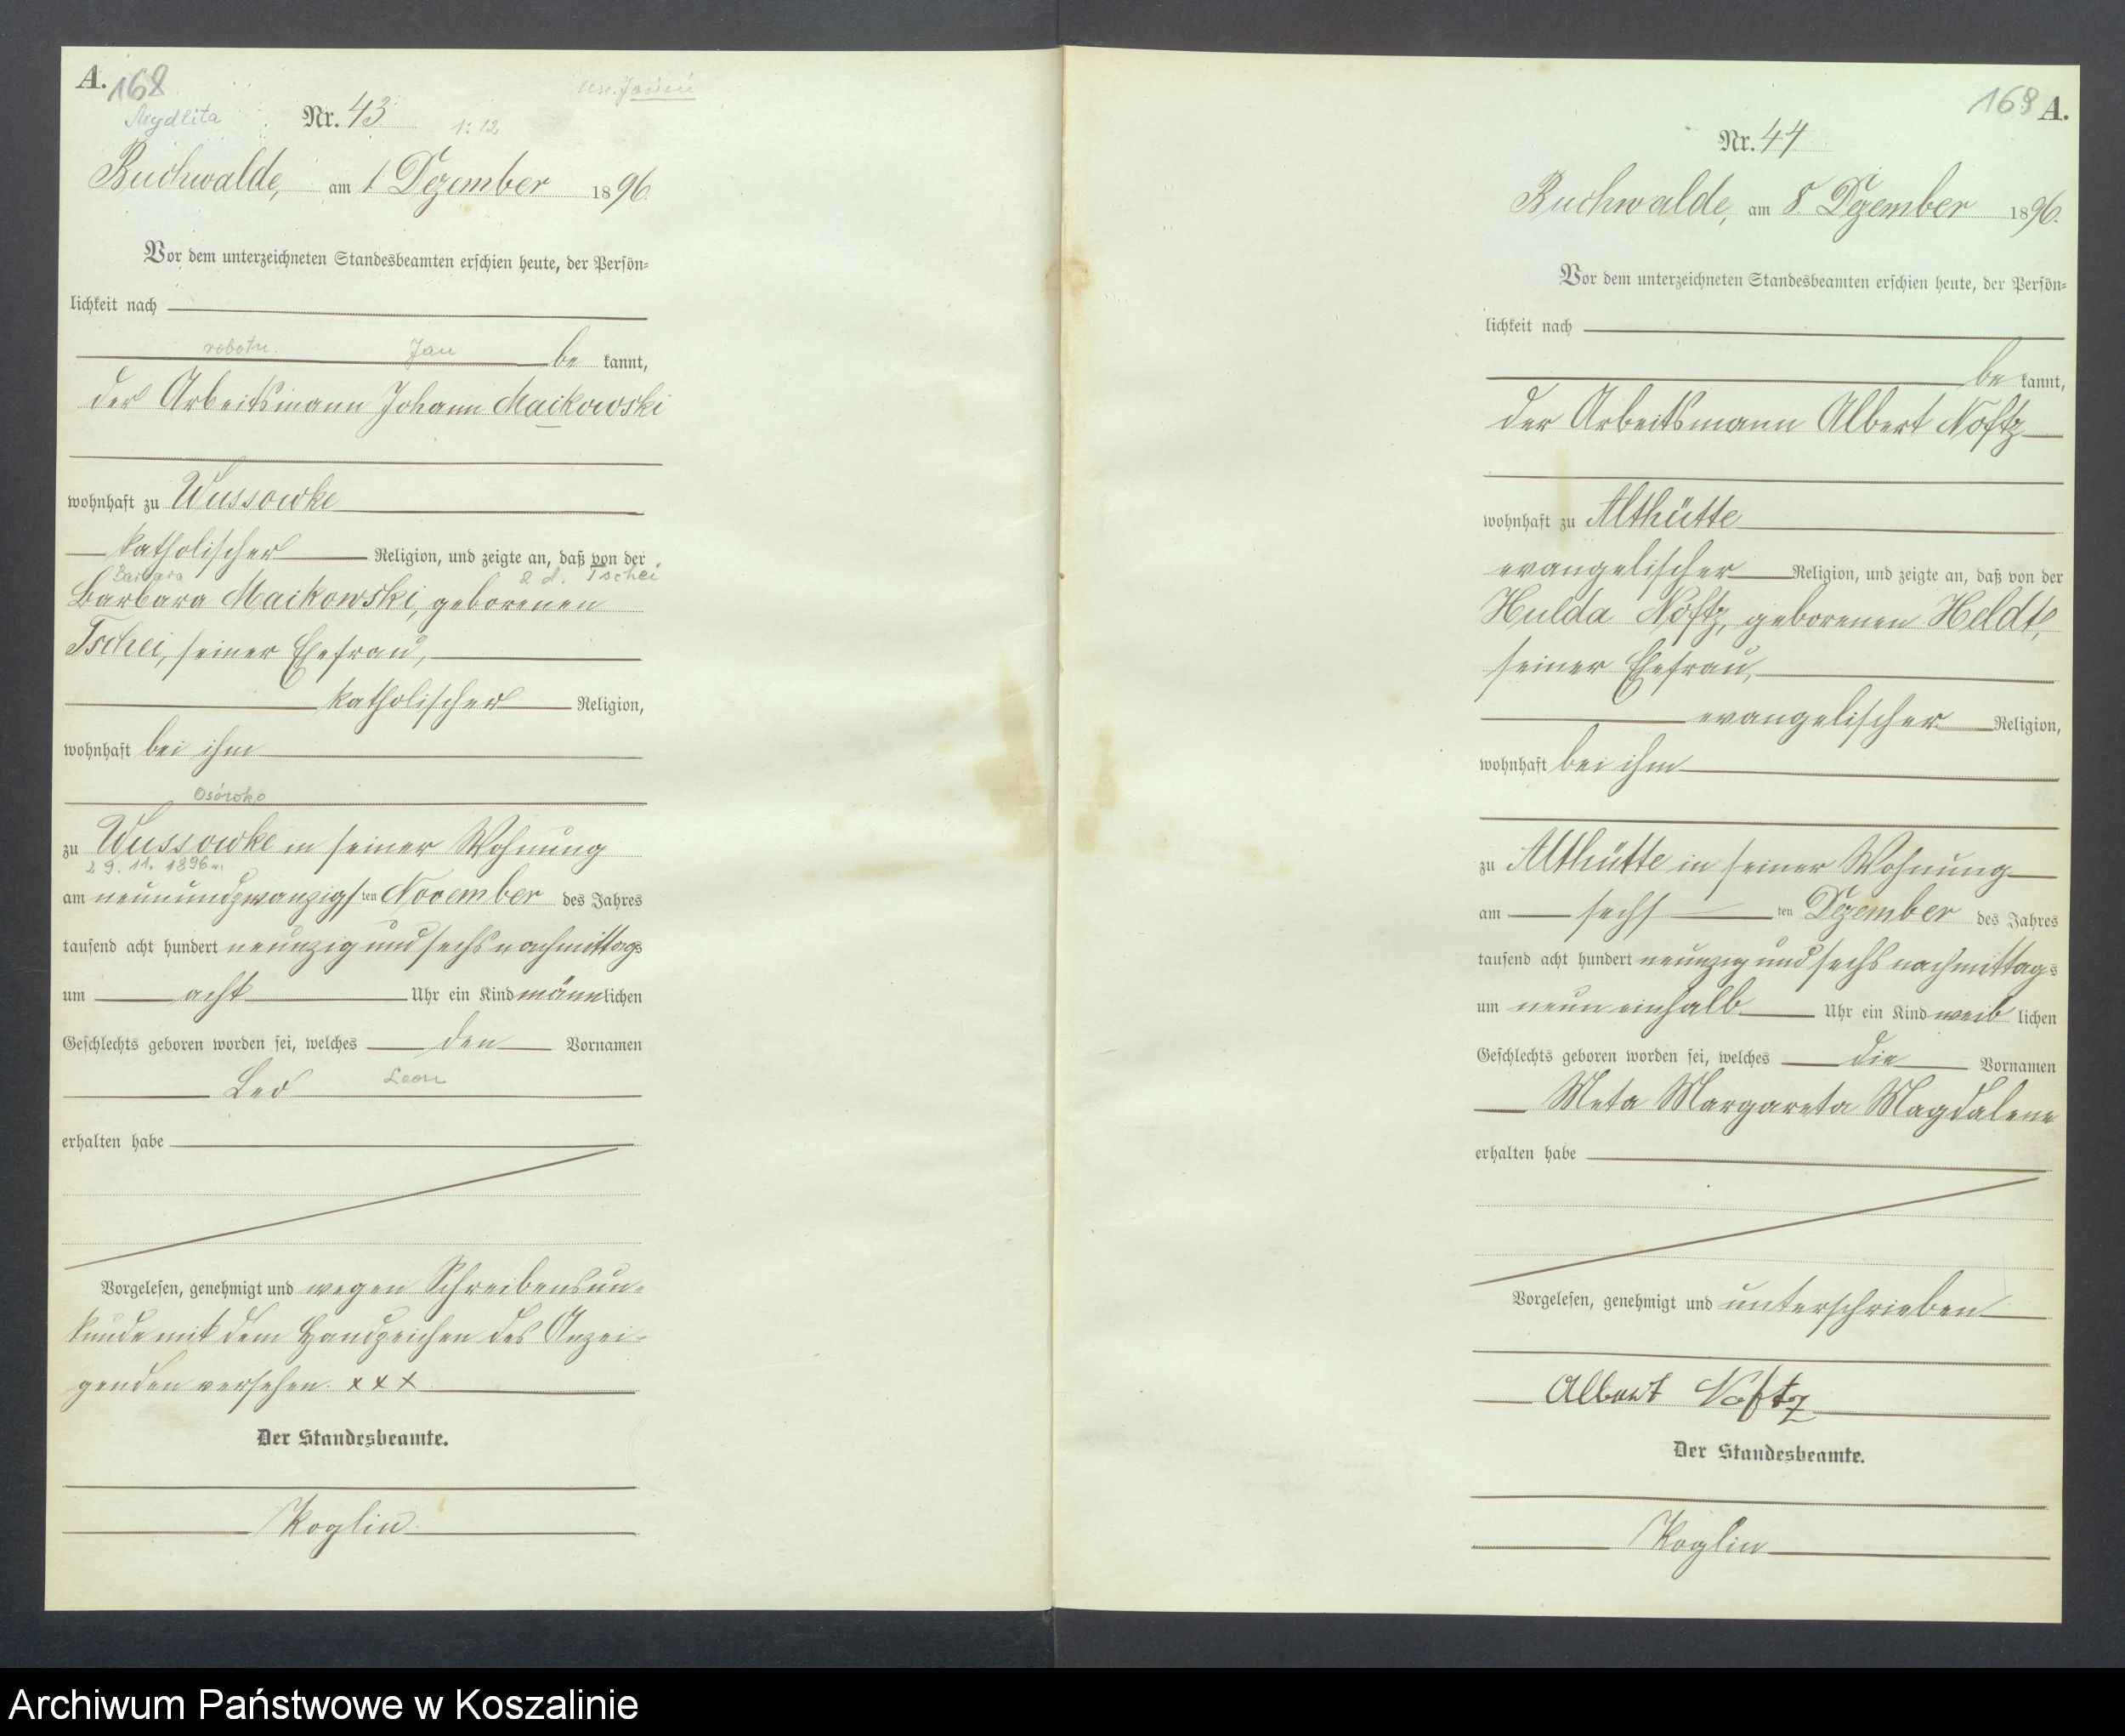 A. 168
Mydlita Nr. 43. 1. 12
Buchwalde, am 1. Dezember 1896.
Vor dem unterzeichneten Standesbeamten erschien heute, der Persön-
lichkeit nach
robotn. Jan
be kannt,
der Arbeitsmann Johann Maikowski
wohnhaft zu Wussowke
katholischer Religion, und zeigte an, daß von der
Barbara z d. Tschei
Barbara Maikowski, geborenen
Tschei, seiner Ehefrau,
katholischer Religion,
wohnhaft bei ihm
Osówko
zu Wussowke in seiner Wohnung
29. 11. 1896
am neunundzwanzigsten November des Jahres
tausend acht hundert neunzig und sechs nachmittags
um acht Uhr ein Kind männlichen
Geschlechts geboren worden sei, welches den Vornamen
Leo Leon
erhalten habe
Vorgelesen, genehmigt und wegen Schreibensun-
kunde mit dem Handzeichen des Anzei-
genden versehen. xxx
Der Standesbeamte.
Koglin.
169 A.
Nr. 44
Buchwalde, am 8. Dezember 1896.
Vor dem unterzeichneten Standesbeamten erschien heute, der Persön-
lichkeit nach
be kannt,
der Arbeitsmann Albert Noftz
wohnhaft zu Althütte
evangelischer Religion, und zeigte an, daß von der
Hulda Noftz, geborenen Heldt,
seiner Ehefrau,
evangelischer Religion,
wohnhaft bei ihm
zu Althütte in seiner Wohnung
am sechsten Dezember des Jahres
tausend acht hundert neunzig und sechs nachmittags
um neun einhalb Uhr ein Kind weiblichen
Geschlechts geboren worden sei, welches die Vornamen
Meta Margareta Magdalene
erhalten habe
Vorgelesen, genehmigt und unterschrieben
Albert Noftz
Der Standesbeamte.
Koglin
Archiwum Państwowe w Koszalinie